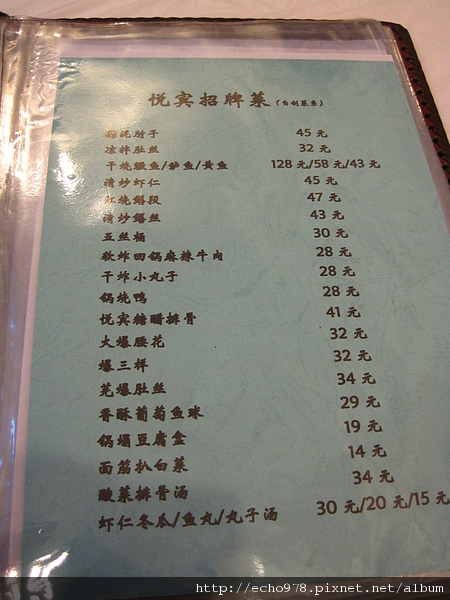 悦宾招牌菜
蒜泥肘子 45 元
凉拌肚丝 32 元
干烧鳜鱼/鲈鱼/黄鱼 128 元/58 元/43 元
清炒虾仁 45 元
红烧鳝段 47 元
清炒鳝丝 43 元
五丝桶 30 元
软炸回锅麻辣牛肉 28 元
干炸小丸子 28 元
锅烧鸭 28 元
悦宾糖醋排骨 41 元
大爆腰花 32 元
爆三样 32 元
芫爆肚丝 34 元
香酥葡萄鱼球 29 元
锅塌豆腐盒 19 元
面筋扒白菜 14 元
酸菜排骨汤 34 元
虾仁冬瓜/鱼丸/丸子汤 30 元/20 元/15 元
http://echo978.pixnet.net/album